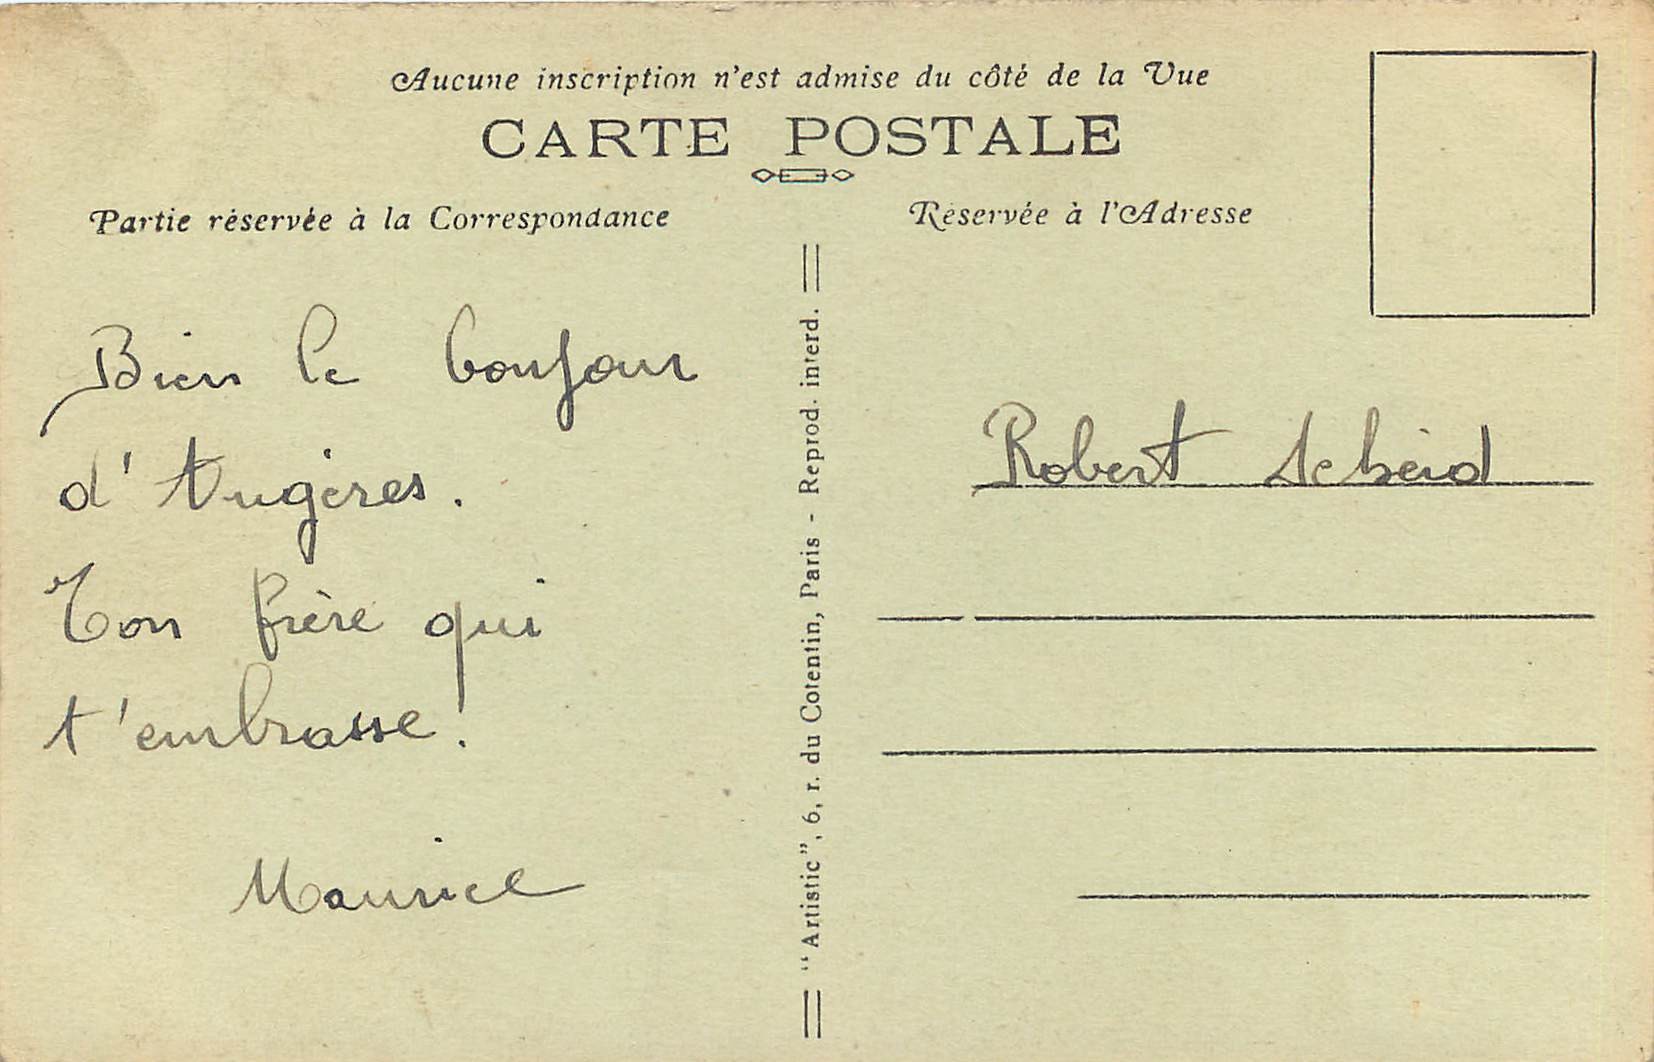 Aucune inscription n'est admise du côté de la Vue
CARTE POSTALE
Partie réservée à la Correspondance
Réservée à l'Adresse
Bien le bonjour
d'Augères.
Ton frère qui
t'embrasse!
Maurice
Robert
"Artistic", 6, r. du Cotentin, Paris - Reprod. interd.